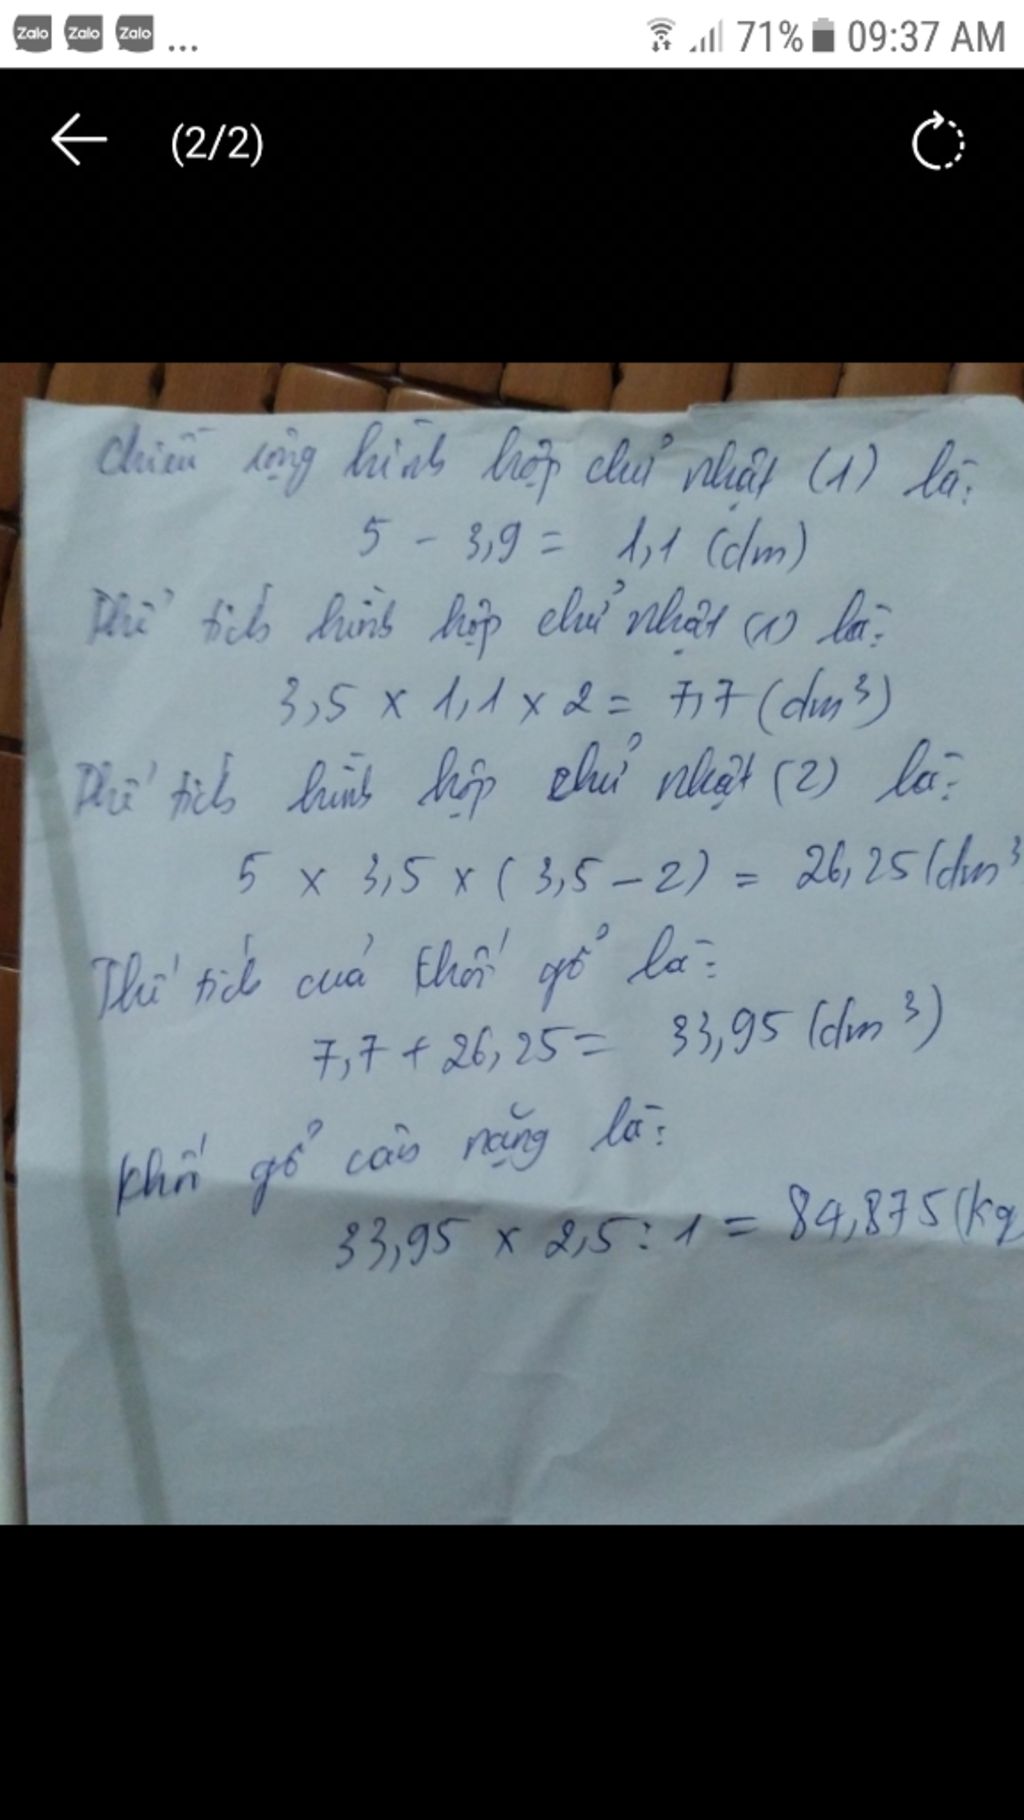 Zalo Zalo Zalo ... 71% 09:37 AM
(2/2)
chiều rộng hình hộp chử nhật (1) là:
5 - 3,9 = 1,1 (dm)
Thể tích hình hộp chử nhật (1) là:
3,5 x 1,1 x 2 = 7,7 (dm³)
Thể tích hình hộp chử nhật (2) là:
5 x 3,5 x (3,5 - 2) = 26,25 (dm³
Thể tích của khối gổ là:
7,7 + 26,25 = 33,95 (dm³)
khối gổ cân nặng là:
33,95 x 2,5 : 1 = 84,875 (kg